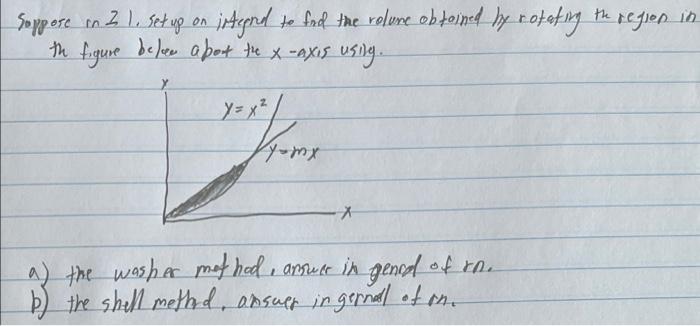 Suppose m ≥ 1. Set up an integral to find the volume obtained by rotating the region in
the figure below about the x-axis using.
y
y=x²
y=mx
x
a) the washer method, answer in general of m.
b) the shell method, answer in general of m.